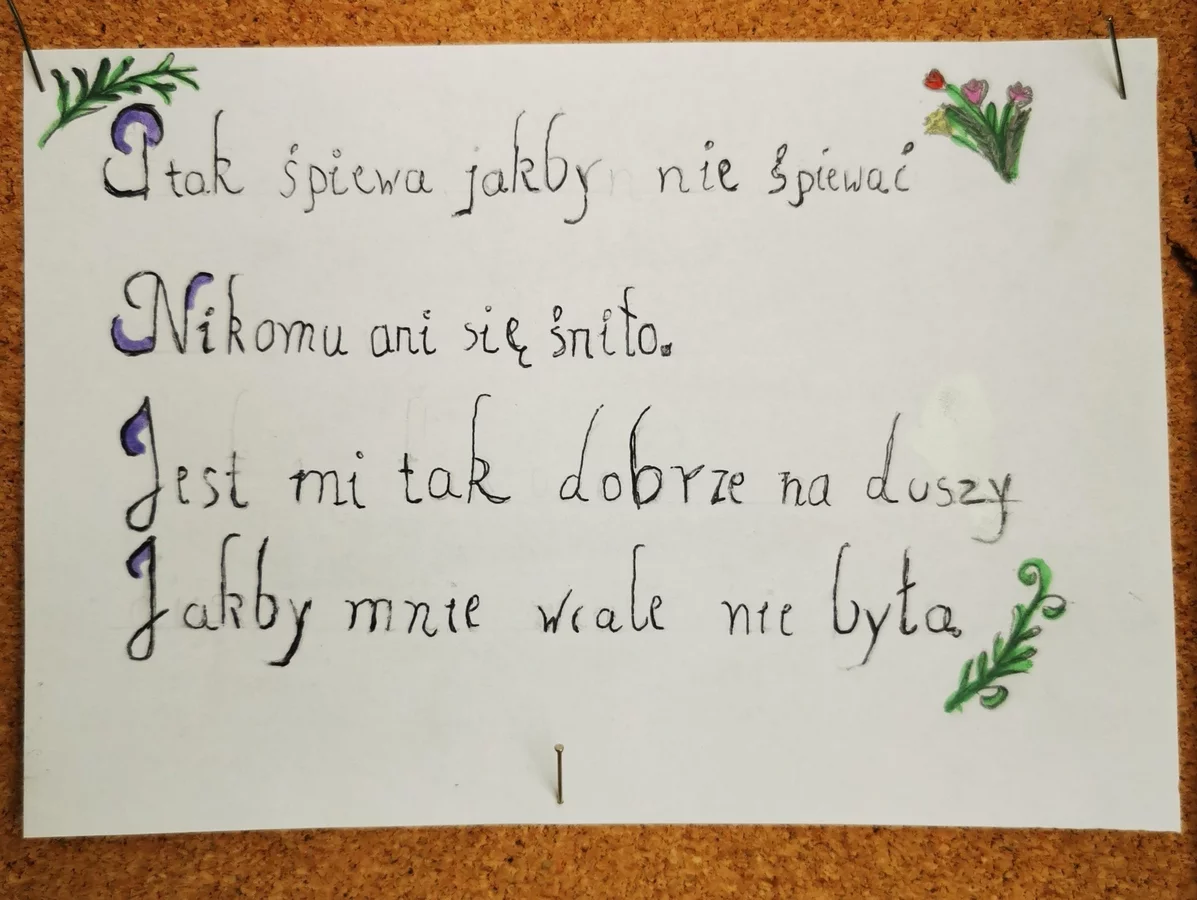 I tak śpiewa jakby nie śpiewać
Nikomu ani się śniło.
Jest mi tak dobrze na duszy
Jakby mnie wcale nie było